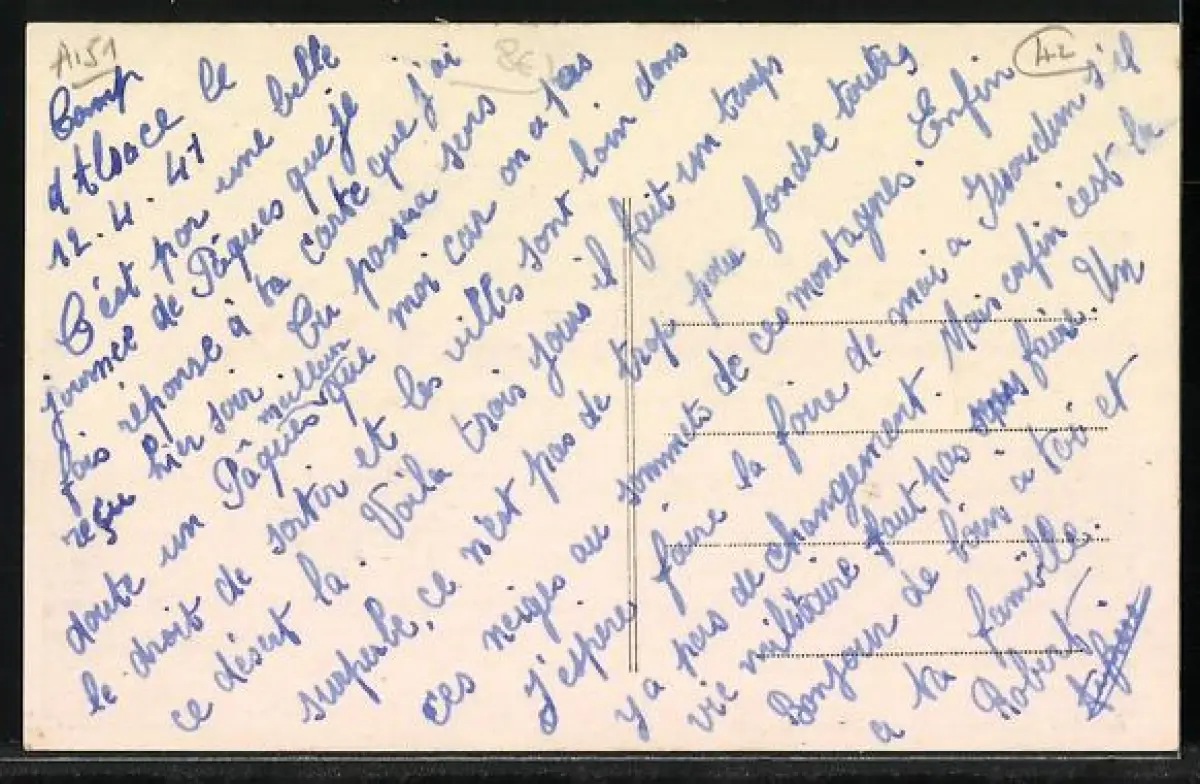 A151
8€
42
Camp
d'Alsace le
12.4.41
C'est por une belle
journée de Pâques que je
fais réponse à ta carte que j'ai
reçu hier soir Tu passera sens
doute un meilleur Pâques que moi car on a pas
le droit de sortir et les villes sont loin dans
ce désert la. Voila trois jours il fait un temps
superbe, ce n'est pas de trop pour fondre toutes
ces neiges au sommets de ces montagnes. Enfin
J'espere faire la foire de mai a Issoudun s'il
y a pas de changement. Mais enfin c'est la
vie militaire faut pas faire. Un
Bonjour de loin a toi et
a ta famille.
Robert